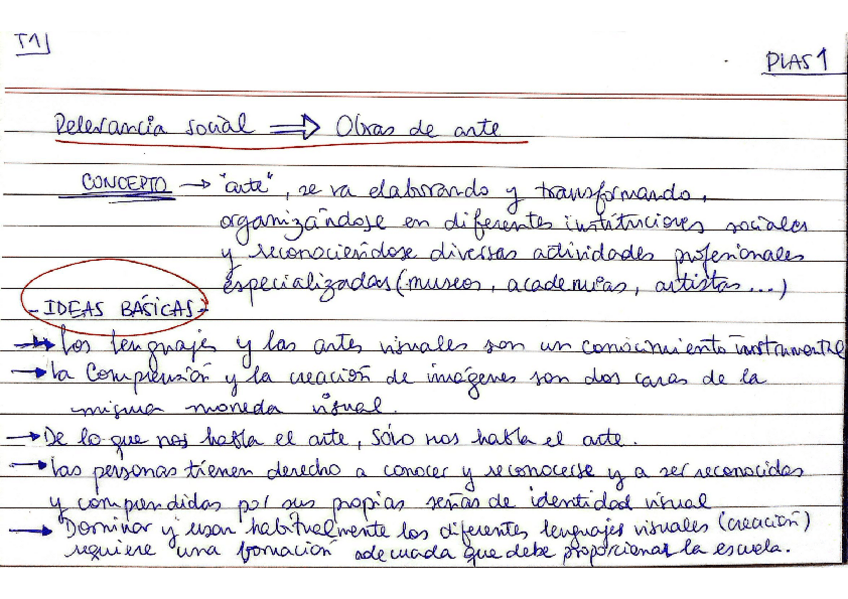 T1
PLAS 1
Relevancia social ⇒ Obras de arte
CONCEPTO → "arte", se va elaborando y transformando,
organizándose en diferentes instituciones sociales
y reconociéndose diversas actividades profesionales
especializadas (museos, academias, artistas...)
- IDEAS BÁSICAS -
→ Los lenguajes y las artes visuales son un conocimiento instrumental
→ La Comprensión y la creación de imágenes son dos caras de la
misma moneda visual.
→ De lo que nos habla el arte, sólo nos habla el arte.
→ Las personas tienen derecho a conocer y reconocerse y a ser reconocidas
y comprendidas por sus propias señas de identidad visual
→ Dominar y usar habitualmente los diferentes lenguajes visuales (creación)
requiere una formación adecuada que debe proporcionar la escuela.